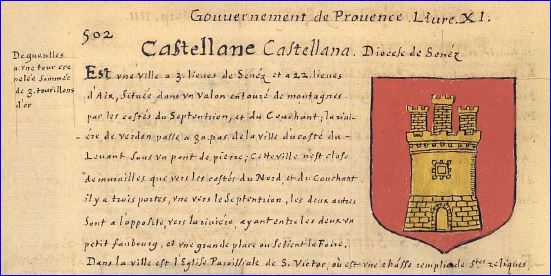 Gouuernement de Prouence Liure. XI.
502
Castellane Castellana. Diocese de Senéz
De gueulles
a vne tour cre
nelée sommée
de 3. tourillons
d'or
Est vne ville a 3. lieues de Senéz et a 22. lieues
d'Aix, Située dans vn valon entouré de montagnes
par les costés du Septentrion, et du Couchant; la riui-
ere de verdon passe a 30. pas de la ville du costé du
Leuant sous vn pont de pierre; Cette ville n'est close
de murailles que vers les costés du Nord, et du Couchant
il y a trois portes, vne vers le Septention, les deux autres
sont a l'opposite, vers la riuiere, ayant entre les deux vn
petit fauxbourg, et vne grande place ou se tient la Foire.
Dans la ville est l'Eglise Paroissiale de S. Victor, où est vne châsse remplie de Stes reliques